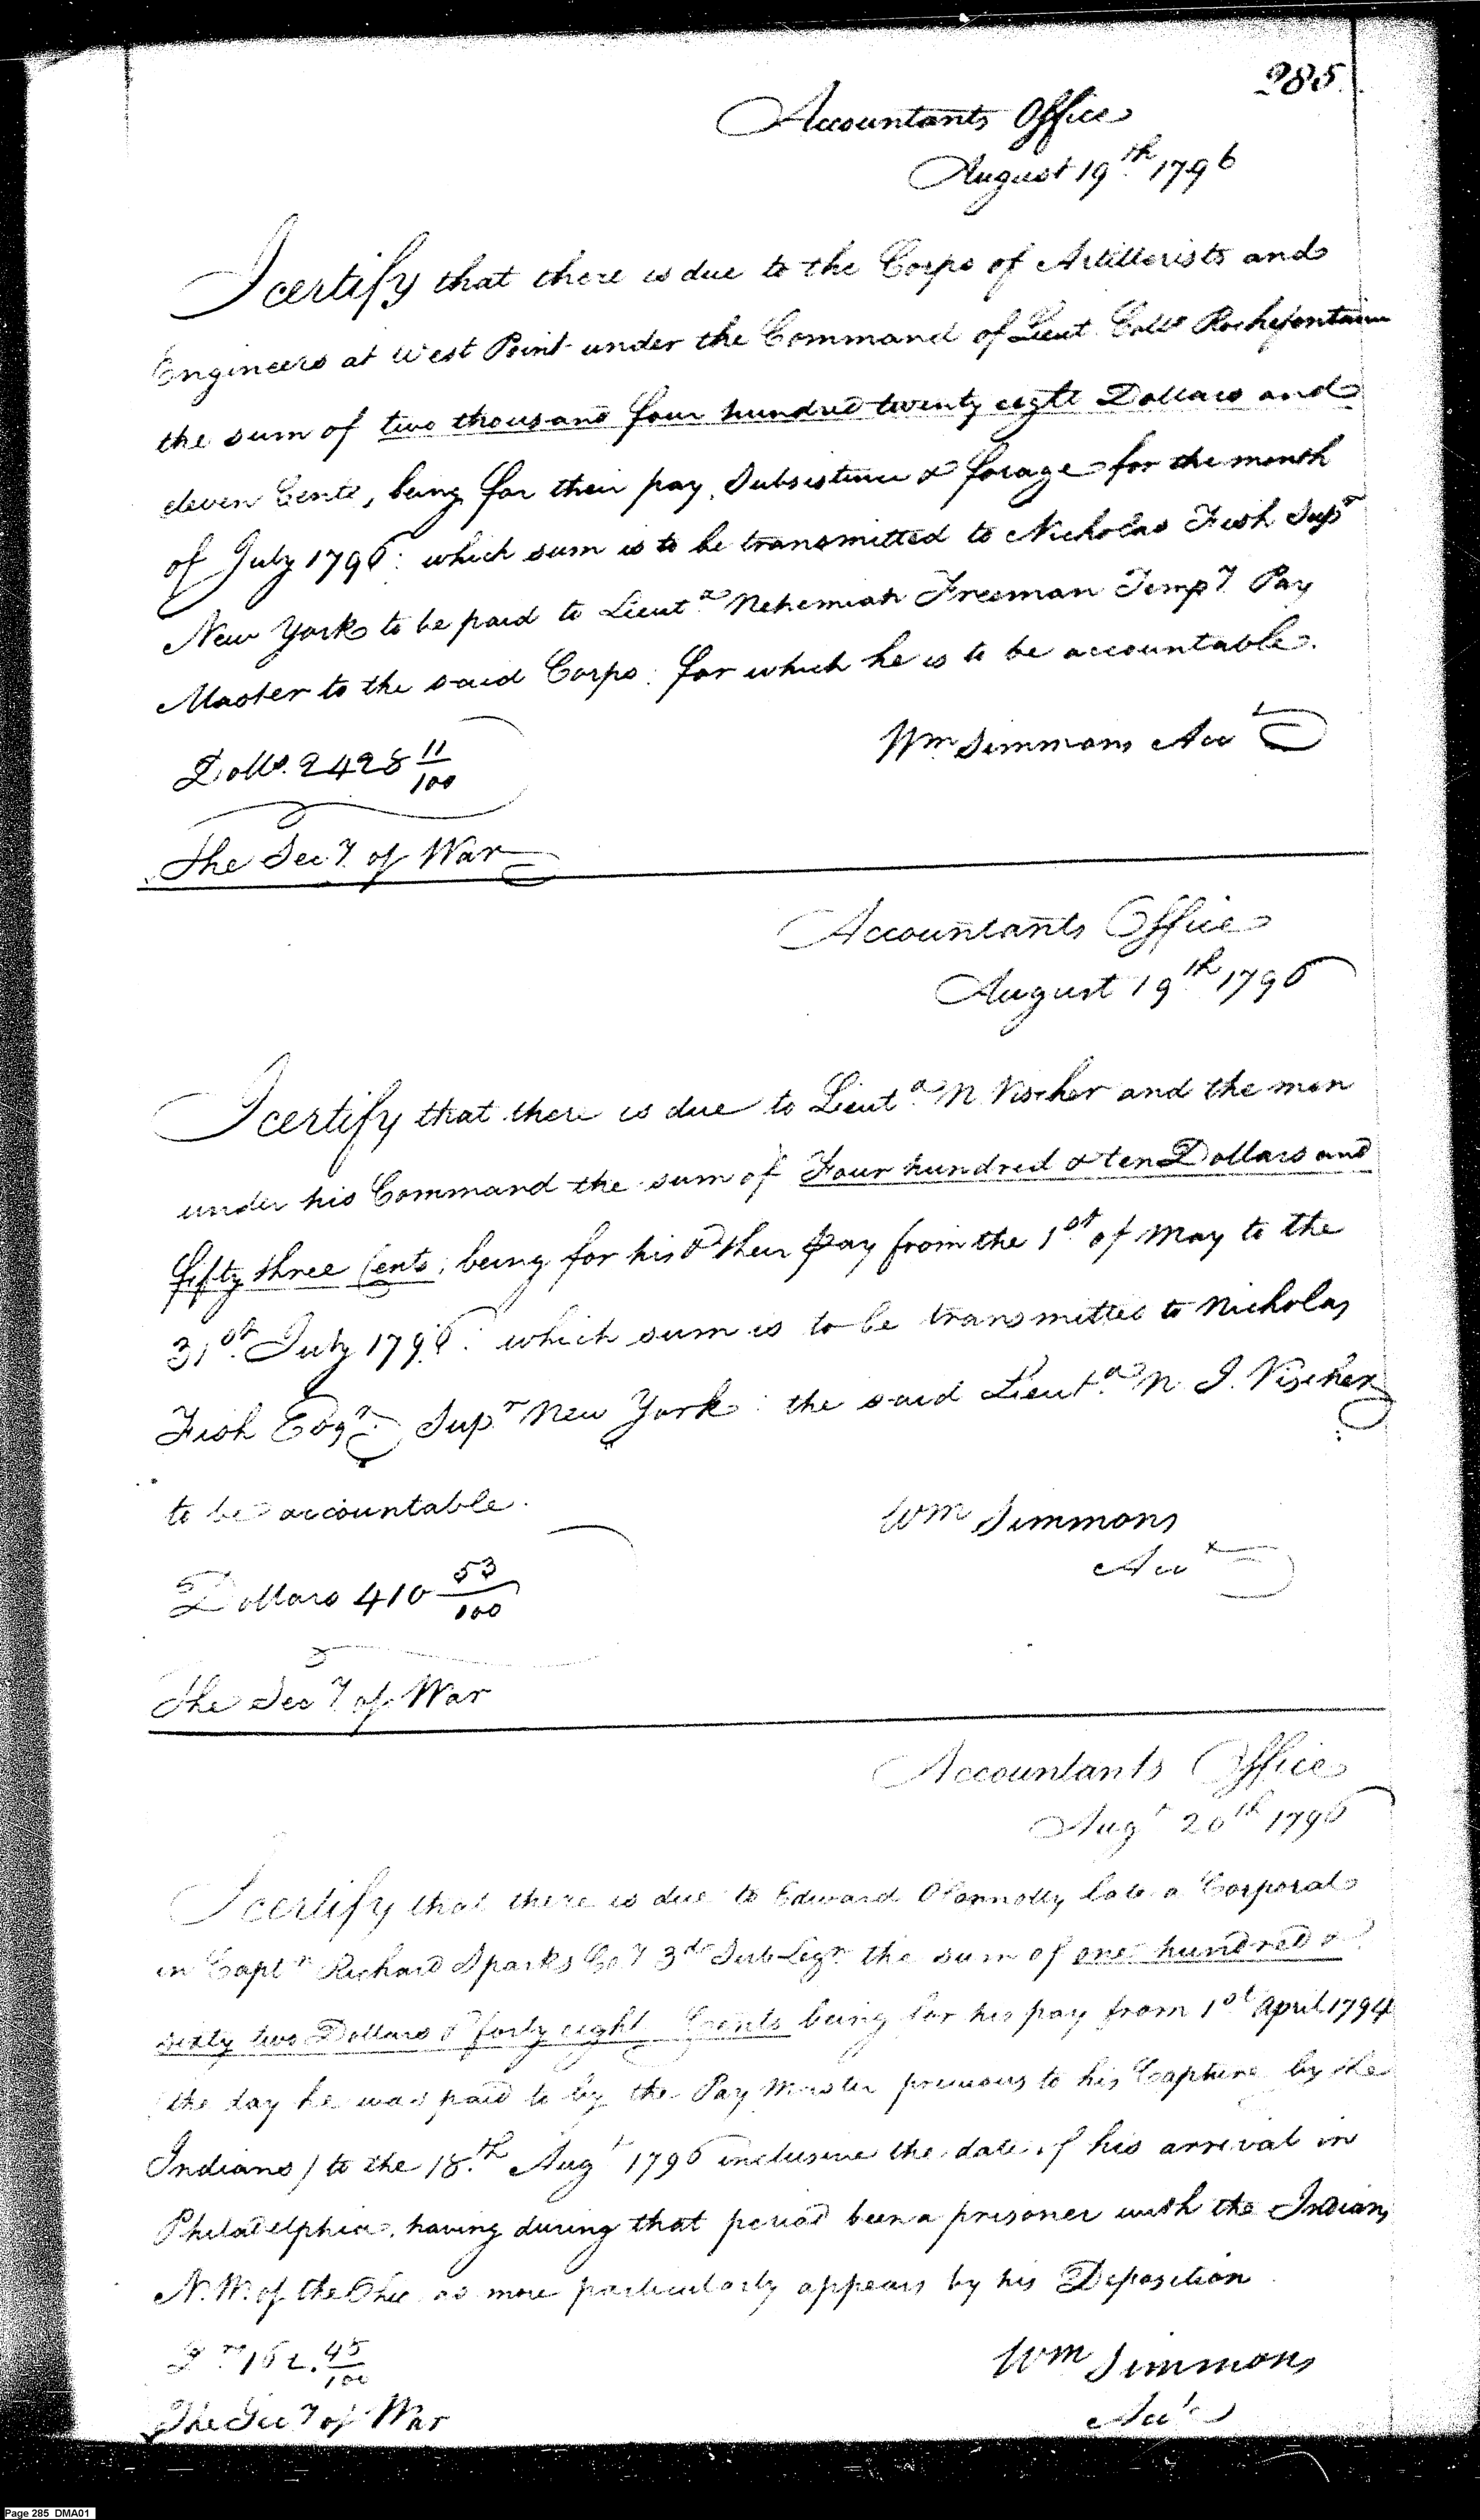 285.
Accountants Office
August 19th 1796
I certify that there is due to the Corps of Artillerists and
Engineers at West Point under the Command of Lieut Collo Rochefontain
the sum of two thousand four hundred twenty eight Dollars and
eleven Cents, being for their pay, Subsistence & forage for the month
of July 1796: which sum is to be transmitted to Nicholas Fish Supr
New York to be paid to Lieut Nehemiah Freeman Tempy Pay
Master to the said Corps: for which he is to be accountable.
Wm Simmons Acct
Dolls. 2428 11/100
The Secy of War
Accountants Office
August 19th 1796
I certify that there is due to Lieut N Vischer and the men
under his Command the sum of Four hundred & ten Dollars and
fifty three Cents; being for his & their pay from the 1st of May to the
31st July 1796: which sum is to be transmitted to Nicholas
Fish Esqr Supr New York: the said Lieut N. I. Vischer
to be accountable.
Wm Simmons
Acct
Dollars 410 53/100
The Secy of War
Accountants Office
Augt 20th 1796
I certify that there is due to Edward OConnolly late a Corporal
in Captn Richard Sparks Coy 3d Sub Legn the sum of one hundred &
sixty two Dollars & forty eight Cents being for his pay from 1st April 1794
(the day he was paid to by the Pay Master previous to his Capture by the
Indians) to the 18th Augt 1796 inclusive the date of his arrival in
Philadelphia, having during that period been a prisoner with the Indians
N.W. of the Ohio as more particularly appears by his Deposition
162. 45/100
Wm Simmons
Acct
The Secy of War
Page 285 DMA01